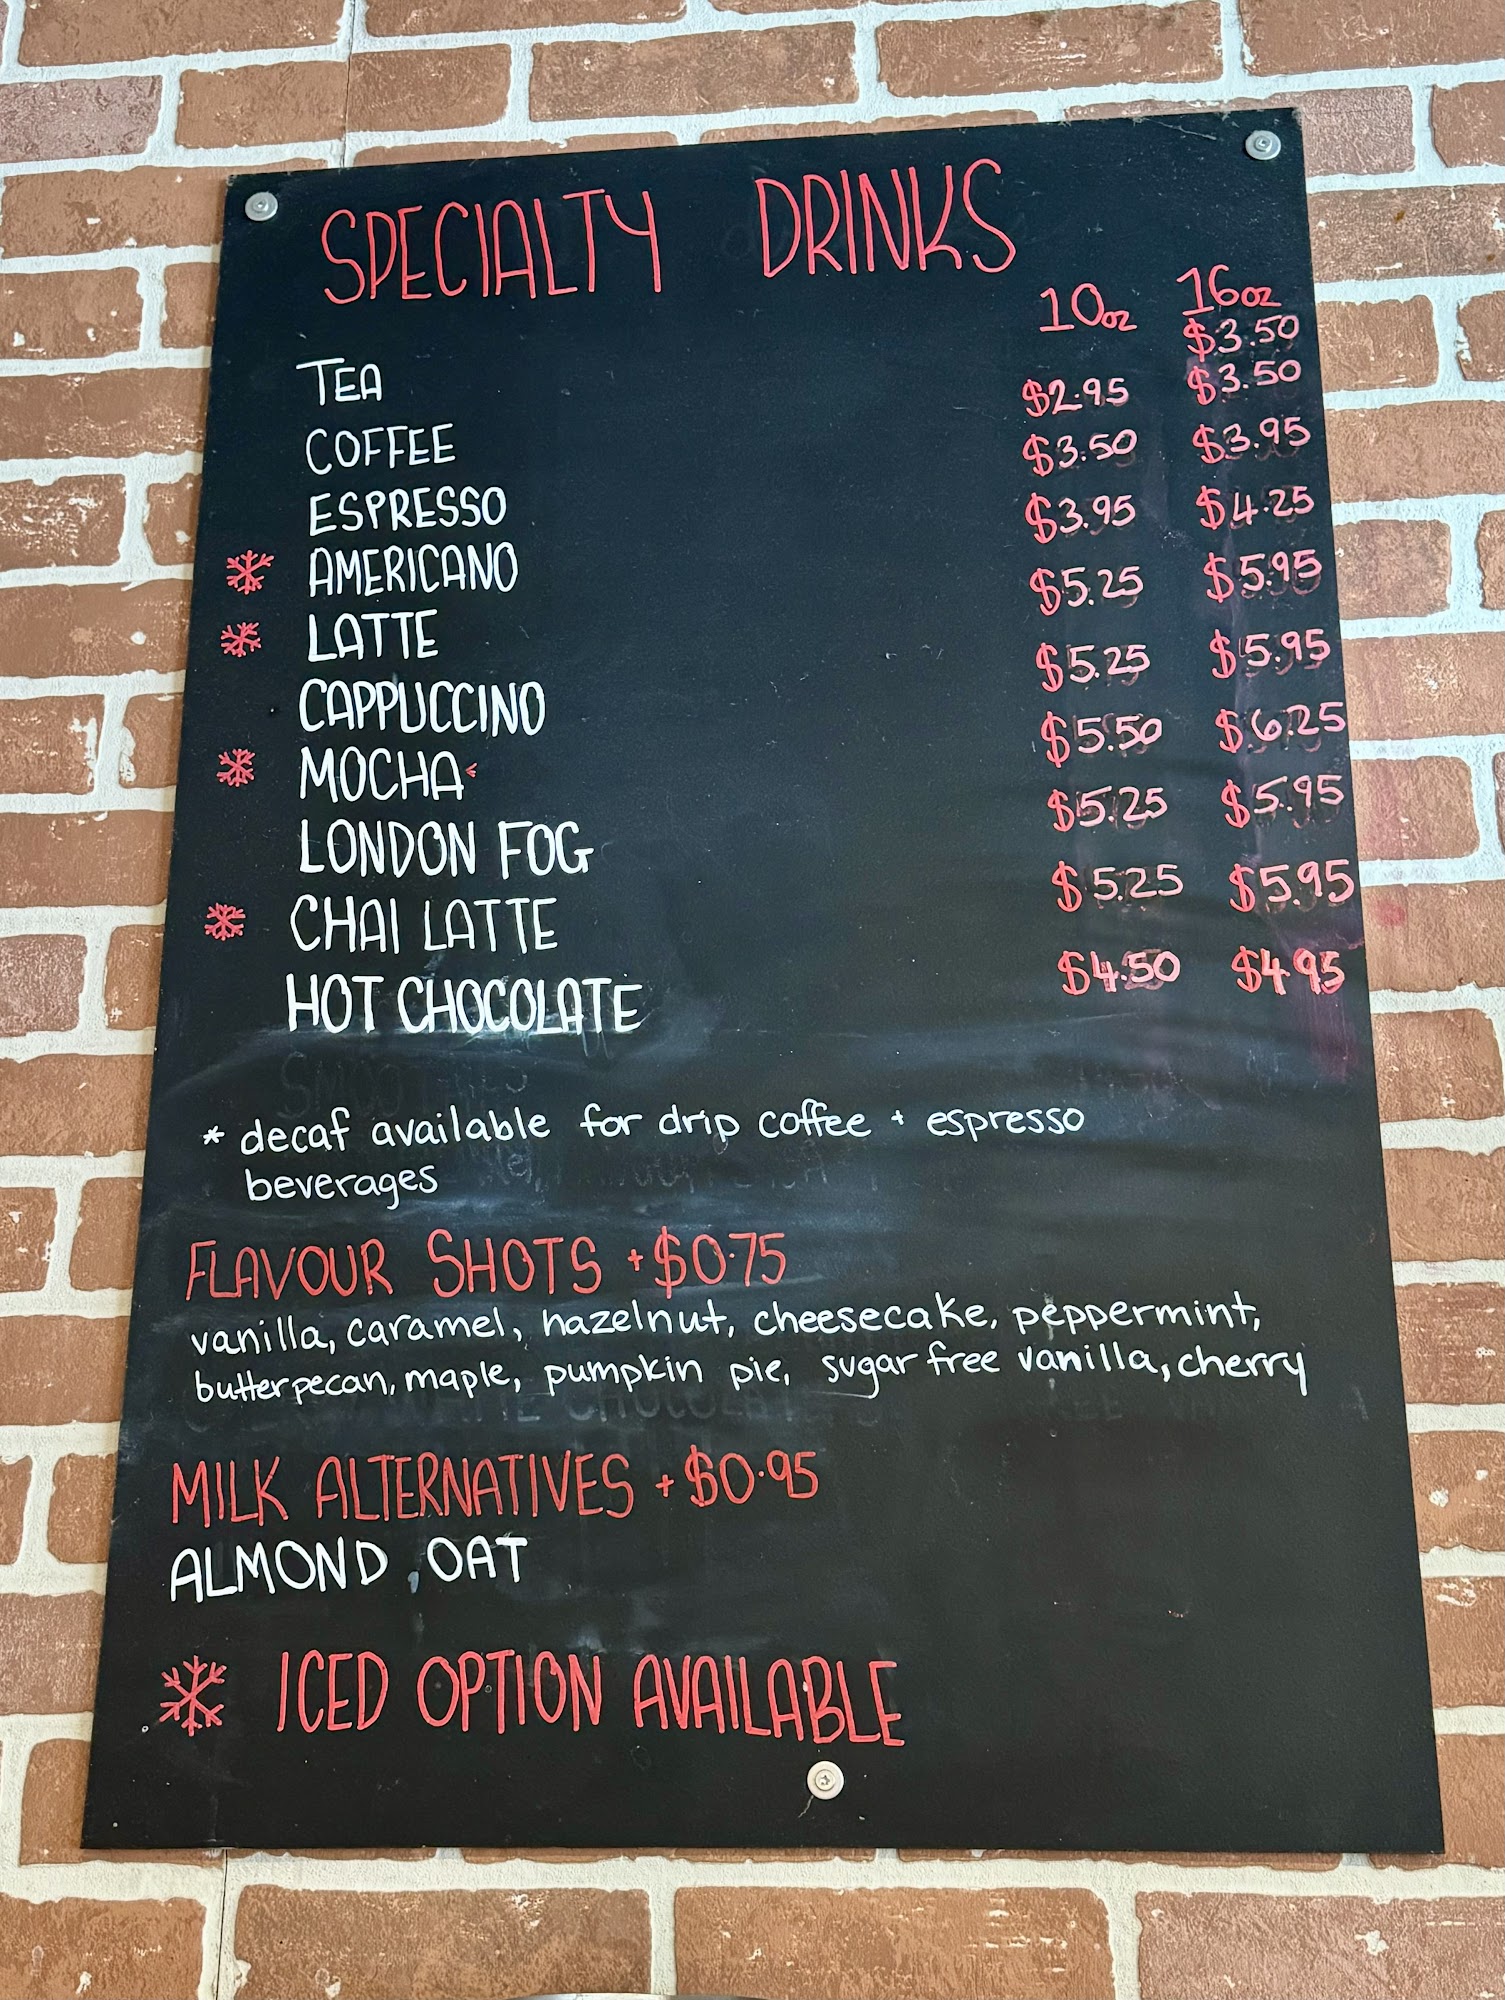 SPECIALTY DRINKS
10oz 16oz
TEA $3.50
COFFEE $2.95 $3.50
ESPRESSO $3.50 $3.95
AMERICANO $3.95 $4.25
LATTE $5.25 $5.95
CAPPUCCINO $5.25 $5.95
MOCHA $5.50 $6.25
LONDON FOG $5.25 $5.95
CHAI LATTE $5.25 $5.95
HOT CHOCOLATE $4.50 $4.95
* decaf available for drip coffee + espresso
beverages
FLAVOUR SHOTS +$0.75
vanilla, caramel, hazelnut, cheesecake, peppermint,
butter pecan, maple, pumpkin pie, sugar free vanilla, cherry
MILK ALTERNATIVES +$0.95
ALMOND, OAT
ICED OPTION AVAILABLE